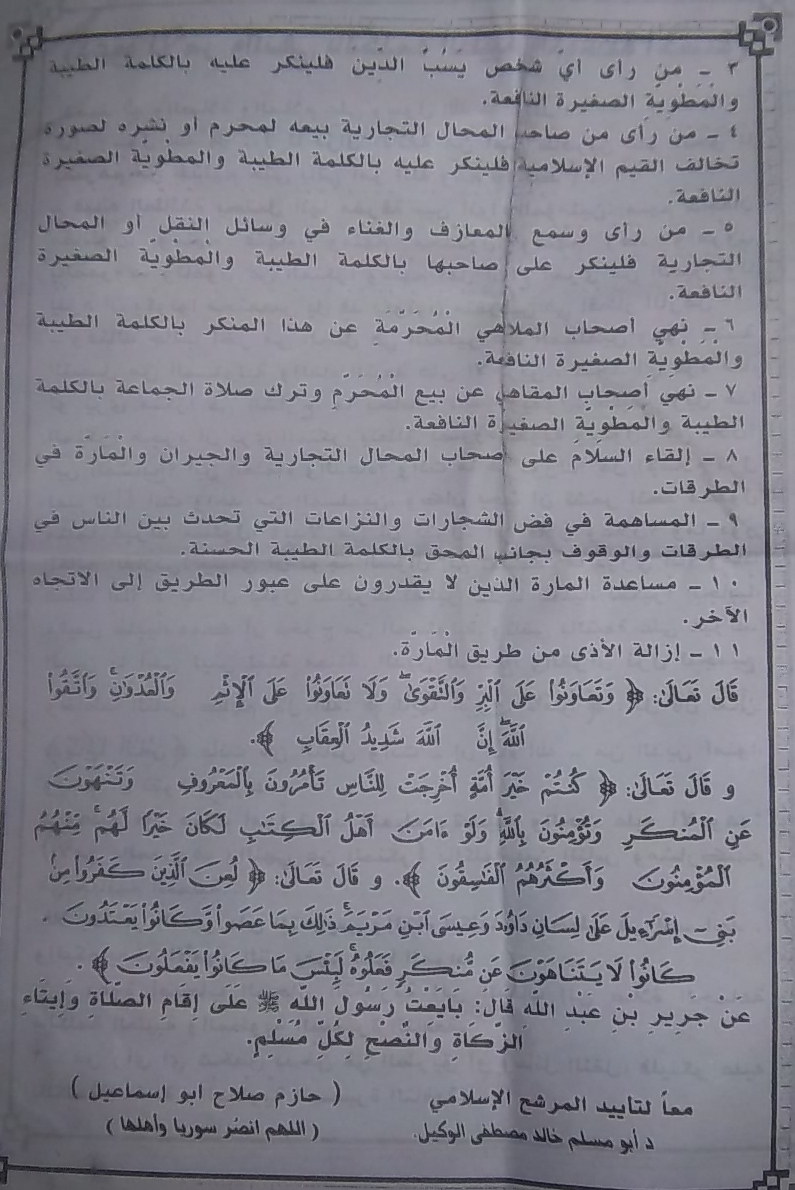 ٣ ـ من رأى أي شخص يسُبُّ الدّين فلينكر عليه بالكلمة الطيبة
والْمَطْوِيَّة الصغيرة النافعة.
٤ ـ من رأى من صاحب المحال التجارية بيعه لمحرم أو نشره لصورة
تخالف القيم الإسلامية فلينكر عليه بالكلمة الطيبة والمطْوِيَّة الصغيرة
النافعة.
٥ ـ من رأى وسمع المعازف والغناء في وسائل النقل أو المحال
التجارية فلينكر على صاحبها بالكلمة الطيبة والْمَطْوِيَّة الصغيرة
النافعة.
٦ ـ نهي أصحاب الملاهي الْمُحَرَّمَةِ عن هذا المنكر بالكلمة الطيبة
والْمَطْوِيَّة الصغيرة النافعة.
٧ ـ نهي أصحاب المقاهي عن بيع الْمُحَرَّمِ وترك صلاة الجماعة بالكلمة
الطيبة والْمَطْوِيَّة الصغيرة النافعة.
٨ ـ إلقاء السلام على أصحاب المحال التجارية والجيران والْمَارَّة في
الطرقات.
٩ ـ المساهمة في فض الشجارات والنزاعات التي تحدث بين الناس في
الطرقات والوقوف بجانب المحق بالكلمة الطيبة الحسنة.
١٠ ـ مساعدة المارة الذين لا يقدرون على عبور الطريق إلى الاتجاه
الآخر.
١١ ـ إزالة الأذى من طريق الْمَارَّة.
قَالَ تَعَالَىٰ: ﴿ وَتَعَاوَنُوا۟ عَلَى ٱلْبِرِّ وَٱلتَّقْوَىٰ ۖ وَلَا تَعَاوَنُوا۟ عَلَى ٱلْإِثْمِ وَٱلْعُدْوَٰنِ ۚ وَٱتَّقُوا۟
ٱللَّهَ ۖ إِنَّ ٱللَّهَ شَدِيدُ ٱلْعِقَابِ ﴾.
و قَالَ تَعَالَىٰ: ﴿ كُنتُمْ خَيْرَ أُمَّةٍ أُخْرِجَتْ لِلنَّاسِ تَأْمُرُونَ بِٱلْمَعْرُوفِ وَتَنْهَوْنَ
عَنِ ٱلْمُنكَرِ وَتُؤْمِنُونَ بِٱللَّهِ ۗ وَلَوْ ءَامَنَ أَهْلُ ٱلْكِتَٰبِ لَكَانَ خَيْرًا لَّهُم ۚ مِّنْهُمُ
ٱلْمُؤْمِنُونَ وَأَكْثَرُهُمُ ٱلْفَٰسِقُونَ ﴾. و قَالَ تَعَالَىٰ: ﴿ لُعِنَ ٱلَّذِينَ كَفَرُوا۟ مِنۢ
بَنِىٓ إِسْرَٰٓءِيلَ عَلَىٰ لِسَانِ دَاوُۥدَ وَعِيسَى ٱبْنِ مَرْيَمَ ۚ ذَٰلِكَ بِمَا عَصَوا۟ وَّكَانُوا۟ يَعْتَدُونَ .
كَانُوا۟ لَا يَتَنَاهَوْنَ عَن مُّنكَرٍ فَعَلُوهُ ۚ لَبِئْسَ مَا كَانُوا۟ يَفْعَلُونَ ﴾ .
عَنْ جَرِيرِ بْنِ عَبْدِ اللَّهِ قَالَ: بَايَعْتُ رَسُولَ اللَّهِ ﷺ عَلَى إِقَامِ الصَّلَاةِ وَإِيتَاءِ
الزَّكَاةِ وَالنُّصْحِ لِكُلِّ مُسْلِمٍ.
معاً لتأييد المرشح الإسلامي ( حازم صلاح ابو إسماعيل )
د أبو مسلم خالد مصطفى الوكيل. ( اللهم انصُر سوريا وأهلها )